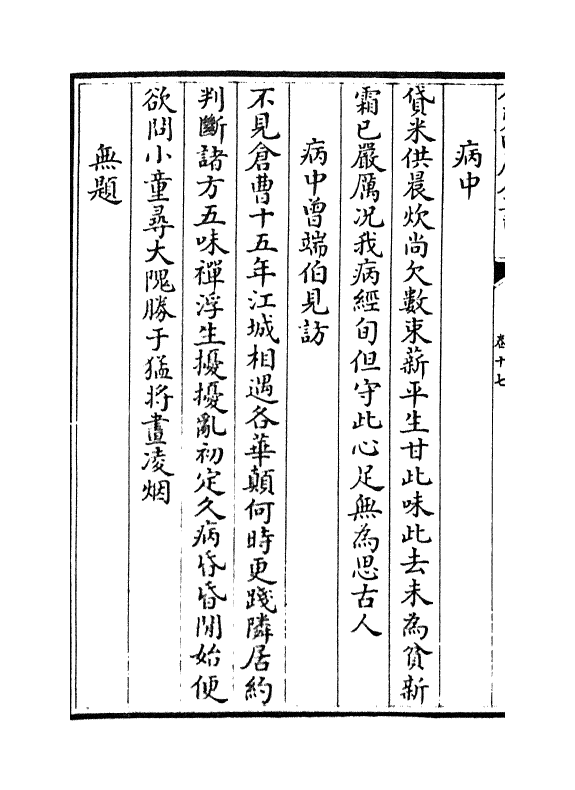 卷十七
病中
貸米供晨炊尚欠數束薪平生甘此味此去未為貧新
霜已嚴厲况我病經旬但守此心足無為思古人
病中曾端伯見訪
不見倉曹十五年江城相遇各華顛何時更踐隣居約
判斷諸方五味禪浮生擾擾亂初定久病昏昏閒始便
欲問小童尋大隗勝于猛将畫凌烟
無題